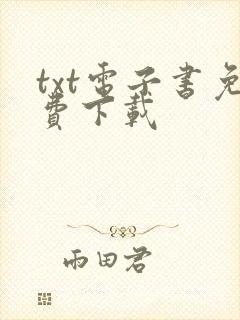 txt電子書免
費下載
雨田君